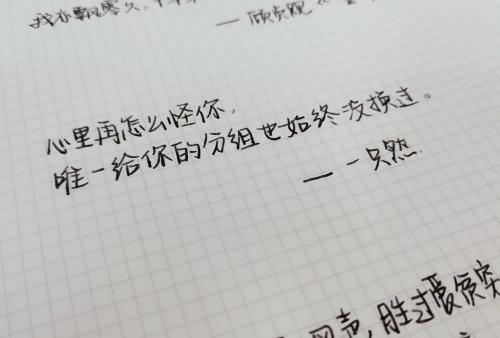 我亦飘零久,
— 顾贞观《
心里再怎么怪你,
唯一给你的分组也始终没换过。
— 一只然.
声,胜过